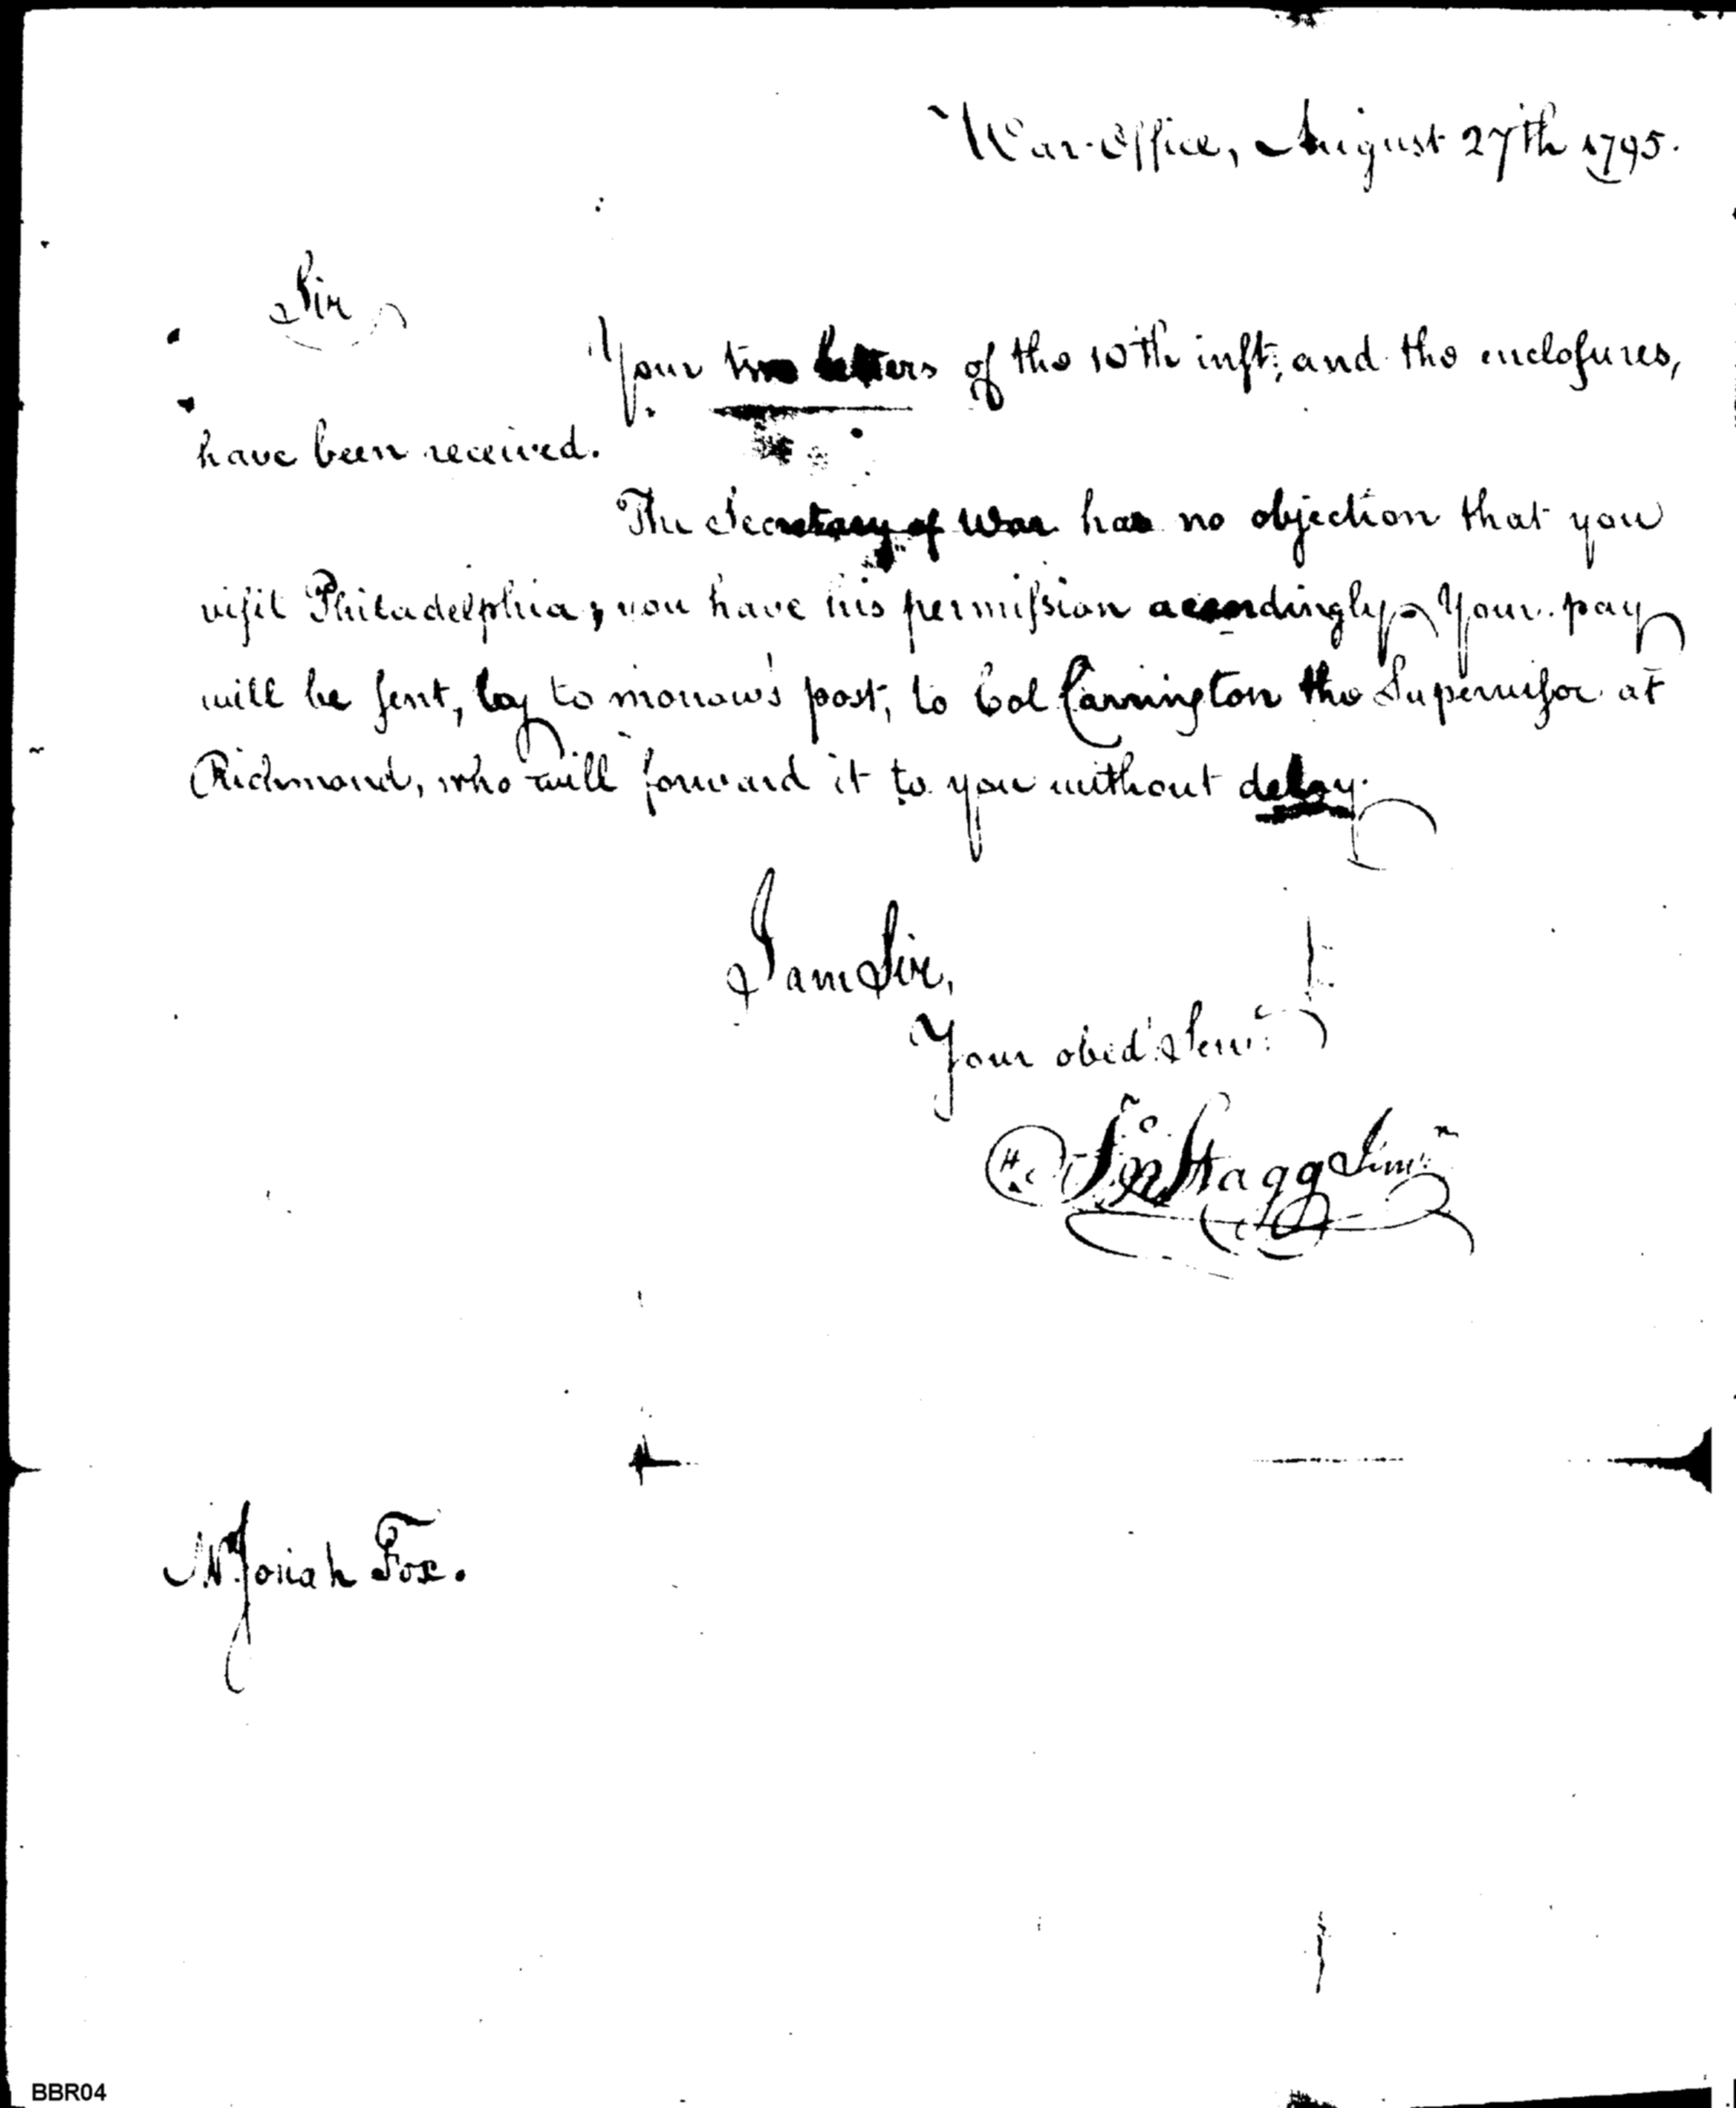 War-Office, August 27th 1795.
Sir
Your two letters of the 10th inst; and the enclosures,
have been received.
The Secretary of War has no objection that you
visit Philadelphia; you have his permission accordingly. Your pay
will be sent, by to morrow's post, to Col Carrington the Supervisor at
Richmond, who will forward it to you without delay.
I am Sir,
Your obed. Serv.t
Jno Stagg Junr
Mr Josiah Fox.
BBR04